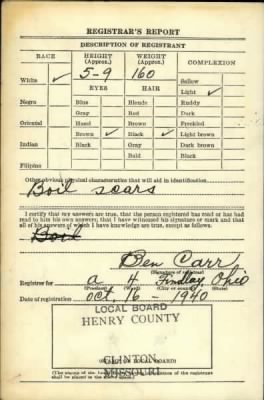 REGISTRAR'S REPORT
DESCRIPTION OF REGISTRANT
RACE HEIGHT (Approx.) WEIGHT (Approx.) COMPLEXION
White ✓ 5-9 160 Sallow
EYES HAIR Light ✓
Negro Blue Blonde Ruddy
Gray Red Dark
Oriental Hazel Brown Freckled
Brown ✓ Black ✓ Light brown
Indian Black Gray Dark brown
Bald Black
Filipino
Other obvious physical characteristics that will aid in identification
Boil scars
I certify that my answers are true, that the person registered has read or has had
read to him his own answers; that I have witnessed his signature or mark and that
all of his answers of which I have knowledge are true, except as follows:
Ben Carr
(Signature of registrar)
Registrar for a 4 Findlay, Ohio
(Precinct) (City or county) (State)
Date of registration Oct. 16 - 1940
LOCAL BOARD
HENRY COUNTY
CLINTON
MISSOURI
(STAMP OF LOCAL BOARD)
(The stamp of the Local Board of the registrant
shall be placed in the above space.)